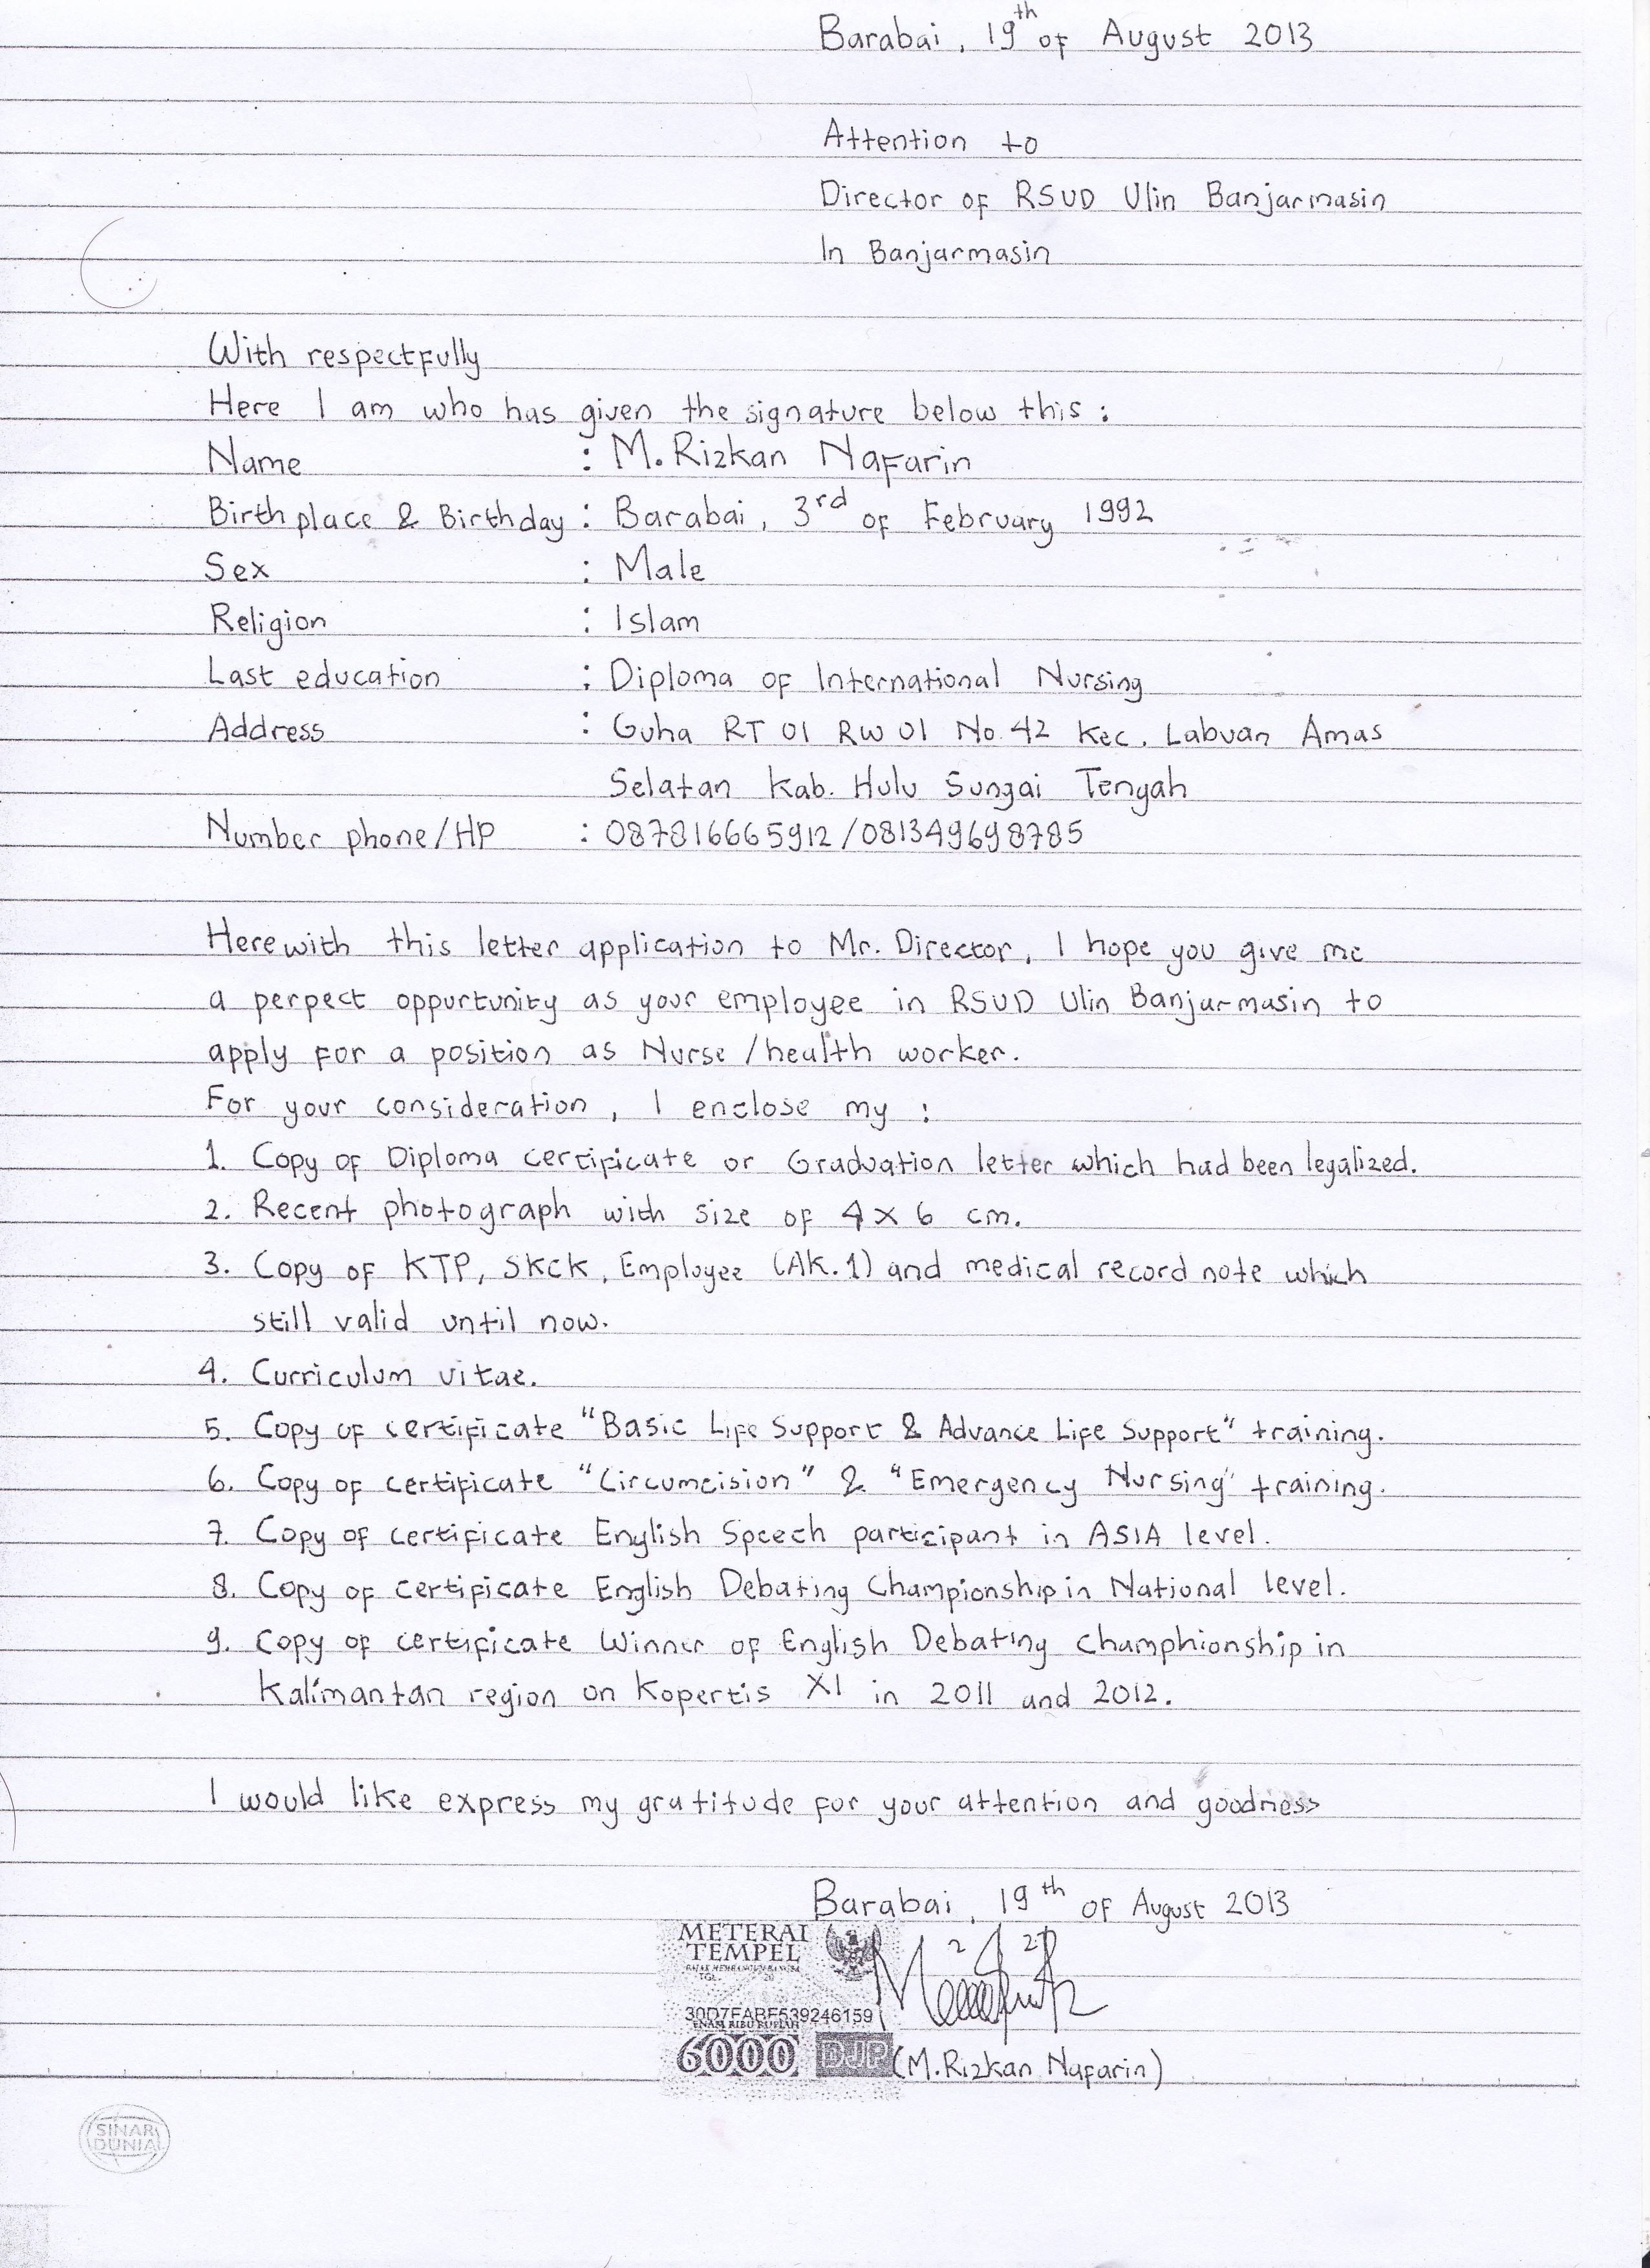 Barabai, 19th of August 2013
Attention to
Director of RSUD Ulin Banjarmasin
In Banjarmasin
With respectfully
Here I am who has given the signature below this :
Name : M. Rizkan Nafarin
Birthplace & Birthday : Barabai, 3rd of February 1992
Sex : Male
Religion : Islam
Last education : Diploma of International Nursing
Address : Guha RT 01 RW 01 No. 42 Kec. Labuan Amas
Selatan Kab. Hulu Sungai Tengah
Number phone/HP : 087816665912 /081349698785
Herewith this letter application to Mr. Director, I hope you give me
a perpect oppurtunity as your employee in RSUD Ulin Banjarmasin to
apply for a position as Nurse /health worker.
For your consideration, I enclose my :
1. Copy of Diploma certificate or Graduation letter which had been legalized.
2. Recent photograph with size of 4 x 6 cm.
3. Copy of KTP, SKCK, Employee (AK.1) and medical record note which
still valid until now.
4. Curriculum vitae.
5. Copy of certificate "Basic Life Support & Advance Life Support" training.
6. Copy of certificate "Circumcision" & "Emergency Nursing" training.
7. Copy of certificate English Speech participant in ASIA level.
8. Copy of certificate English Debating Championship in National level.
9. Copy of certificate Winner of English Debating Champhionship in
Kalimantan region on Kopertis XI in 2011 and 2012.
I would like express my gratitude for your attention and goodness
Barabai, 19th of August 2013
METERAI
TEMPEL
PAJAK MEMBANGUN BANGSA
TGL. 20
30D7EABF539246159
ENAM RIBU RUPIAH
6000 DJP
(M. Rizkan Nafarin)
SINAR
DUNIA